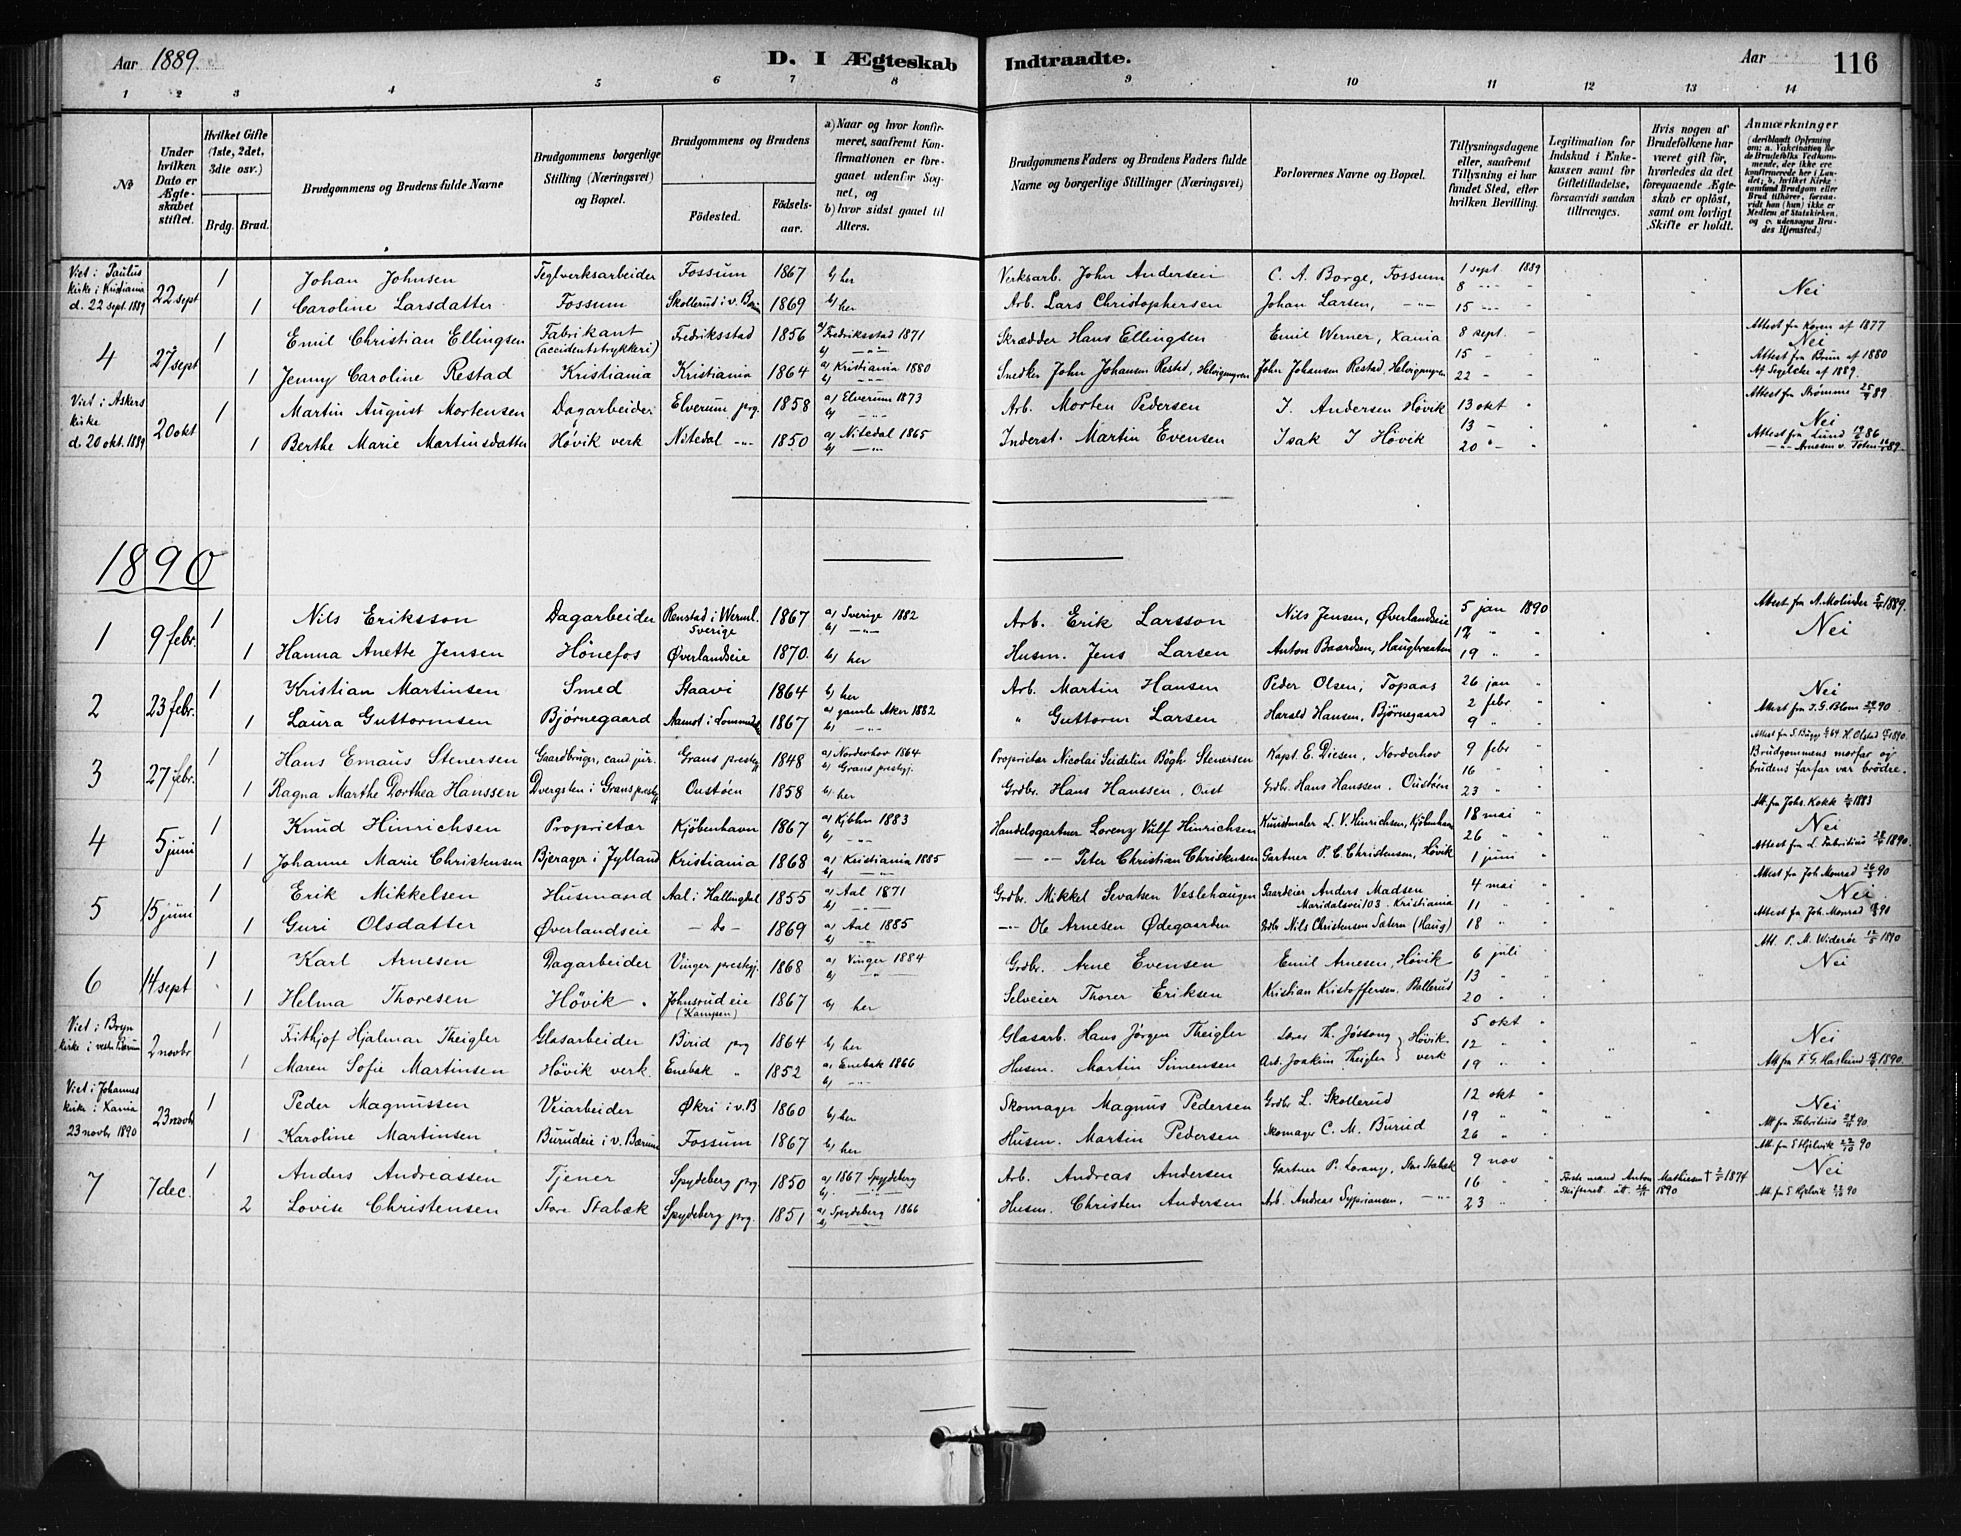 Aar 1889.
D. I Ægteskab Indtraadte.
Aar
116
1 2 3 4 5 6 7 8 9 10 11 12 13 14
No
Under hvilken Dato er Ægteskabet stiftet.
Hvilket Gifte (1ste, 2det, 3die osv.)
Brdg. Brud.
Brudgommens og Brudens fulde Navne
Brudgommens borgerlige Stilling (Næringsvei) og Bopæl.
Brudgommens og Brudens
Födested.
Födsels-aar.
a) Naar og hvor konfirmeret, saafremt Konfirmationen er foregaaet udenfor Sognet, og
b) hvor sidst gaaet til Alters.
Brudgommens Faders og Brudens Faders fulde Navne og borgerlige Stillinger (Næringsvei)
Forlovernes Navne og Bopæl.
Tillysningsdagene eller, saafremt Tillysning ei har fundet Sted, efter hvilken Bevilling.
Legitimation for Indskud i Enkekassen samt for Giftetilladelse, forsaavidt saadan tiltrænges.
Hvis nogen af Brudefolkene har været gift før, hvorledes da det foregaaende Ægteskab er opløst, samt om lovligt Skifte er holdt.
Anmærkninger
(deriblandt Oplysning om: a. Vakcination for de Brudefolks Vedkommende, der ikke ere konfirmerede her i Landet; b. hvilket Kirkesamfund Brudgom eller Brud tilhører, forsaavidt han (hun) ikke er Medlem af Statskirken, og c. udensogns Brudes Hjemsted.)
Viet i Paulus kirke i Kristiania d. 22 sept. 1889 22 sept
1 Johan Johnsen Teglverksarbeider Fossum 1867 b) her Verksarb. John Andersen C. A. Borge, Fossum 1 sept 1889
8 " "
1 Caroline Larsdatter Fossum Skollerud i v. Bær. 1869 b) her Arb. Lars Christophersen Johan Larsen, -"- 15 -"- Nei
4 27 sept 1 Emil Christian Ellingsen Fabrikant (accidentstrykkeri) Fredriksstad 1856 a) Fredriksstad 1871 b) -"- Skrædder Hans Ellingsen Emil Werner, Xania 8 sept. Attest fra Koren af 1877
15 - Nei
Attest fra Brun af 1880
1 Jenny Caroline Restad Kristiania Kristiania 1864 a) Kristiania 1880 b) -"- Snedker John Johansen Restad, Helvigmyren John Johansen Restad, Helvigmyren 22 - af 1889.
Viet i Askers kirke d. 20 okt. 1889 20 okt
1 Martin August Mortensen Dagarbeider Elverum prg. 1858 a) Elverum 1873 b) -"- Arb. Morten Pedersen I. Andersen Høvik 13 okt Attest fra Strømme 25/9 89
13 - Nei
1 Berthe Marie Martinsdatter Høvik verk Nitedal -"- 1850 a) Nitedal 1865 b) -"- Inderst. Martin Evensen Isak I Høvik 20 " - Attest fra Lund 86
-"- Arnesen v. Toten 89.
1890
1 9 febr. 1 Nils Eriksson Dagarbeider Renstad i Werml. Sverige 1867 a) Sverige 1882 b) -"- Arb. Erik Larsson Nils Jensen, Øverlandseie 5 jan 1890 Attest fra A. Molinder 1889.
12 " " Nei
1 Hanna Anette Jensen Hönefos Øverlandseie 1870. b) her Husm. Jens Larsen Anton Baardsen, Haugbraaten 19 " "
2 23 febr. 1 Kristian Martinsen Smed Staavi 1864 b) her Arb. Martin Hansen Peder Olsen, Topaas 26 jan " Nei
2 febr "
1 Laura Guttormsen Bjørnegaard Aamot i Lommed. 1867 a) gamle Aker 1882 b) -"- " Guttorm Larsen Harald Hansen, Bjørnegaard 9 " " Attest fra J. G. Blom 90
3 27 febr. 1 Hans Emaus Stenersen Gaardbruger, cand jur. Grans prestegj. 1848 a) Norderhov 1864 b) Grans prestgj. Proprietær Nicolai Seidelin Bögh Stenersen Kapt. E. Diesen, Norderhov 9 febr " Attest fra S. Bugge 64 H. Olstad 1890.
16 " " Brudgommens morfar og brudens farfar var brödre.
1 Ragna Marthe Dorthea Hanssen Dvergsten i Grans prestegj. Oustöen 1858 b) her Grdbr. Hans Hanssen, Oust Grdbr. Hans Hanssen, Oustöen 23 " "
4 5 juni 1 Knud Hinrichsen Proprietær Kjöbenhavn 1867 a) Kjbhn 1883 b) -"- Handelsgartner Lorenz Vulf Hinrichsen Kunstmaler L. V. Hinrichsen, Kjöbenhavn 18 mai " Att. fra Johs. Kokk 1883
26 " " Nei
1 Johanne Marie Christensen Bjerager i Jylland Kristiania 1868 a) Kristiania 1885 b) -"- -"- Peter Christian Christensen Gartner P. C. Christensen, Høvik 1 juni " Attest fra L Fabritius 1890.
5 15 juni 1 Erik Mikkelsen Husmand Aal i Hallingdal 1855 a) Aal 1871 b) -"- Grdbr. Mikkel Sevatsen Veslehaugen Gaardeier Anders Madsen Maridalsvei 103. Kristiania 4 mai " Attest fra Joh Monrad 26/3 90
11 " " Nei
1 Guri Olsdatter Øverlandseie - Do - 1869 a) Aal 1885 b) -"- -"- Ole Arnesen Ødegaarden Grdbr Nils Christensen Satern (Haug) 18 " " Attest fra Joh. Monrad 90
6 14 sept 1 Karl Arnesen Dagarbeider Vinger prestgj. 1868 a) Vinger 1884 b) -"- Grdbr. Arne Evensen Emil Arnesen, Høvik 6 juli " Att. P. M. Widerøe 1890
13 " " Nei
1 Helma Thoresen Høvik. Johnsrud eie (Kampen) 1867 b) her Selveier Thorer Eriksen Kristian Kristoffersen, Ballerud 20 " "
Viet i Bryn kirke i vestre Bærum 2 novbr
1 Frithjof Hjalmar Theigler Glasarbeider Birid prg 1864 b) her Glasarb. Hans Jörgen Theigler Lars Th. Jøssong } Høvik verk 5 okt " Nei
12 " "
1 Maren Sofie Martinsen Høvik verk. Enebak " 1852 a) Enebak 1866 b) -"- Husm. Martin Simensen Arb. Joakim Theigler 19 " " Att fra F. G. Haslund 1890.
Viet i Johannes kirke i Xania 23 novbr 1890 23 novb
1 Peder Magnussen Veiarbeider Økri i v. B 1860 b) her Skomager Magnus Pedersen Grdbr L. Skollerud 12 okt " Nei
19 " " Att fra Fabritius 90.
1 Karoline Martinsen Burudeie i v. Bærum Fossum 1867 b) her Husm. Martin Pedersen Skomager C. M. Burud 26 " "
7 7 dec. 1 Anders Andreassen Tjener Spydeberg prg. 1850 a) 1867 Spydeberg b) -"- Arb. Andreas Andersen Gartner P. Lorang, Store Stabæk 9 nov " Att fra E Hjelvik 90
16 " " Første mand Anton Mathiesen † 1874 Nei
2 Lovise Christensen Store Stabæk Spydeberg prg. 1851 a) Spydeberg 1866 b) -"- Husm. Christen Andersen Arb. Andreas Syprianssen, -"- 23 " " Skifteret. att. 1890 Att. fra E Hjelvik 90